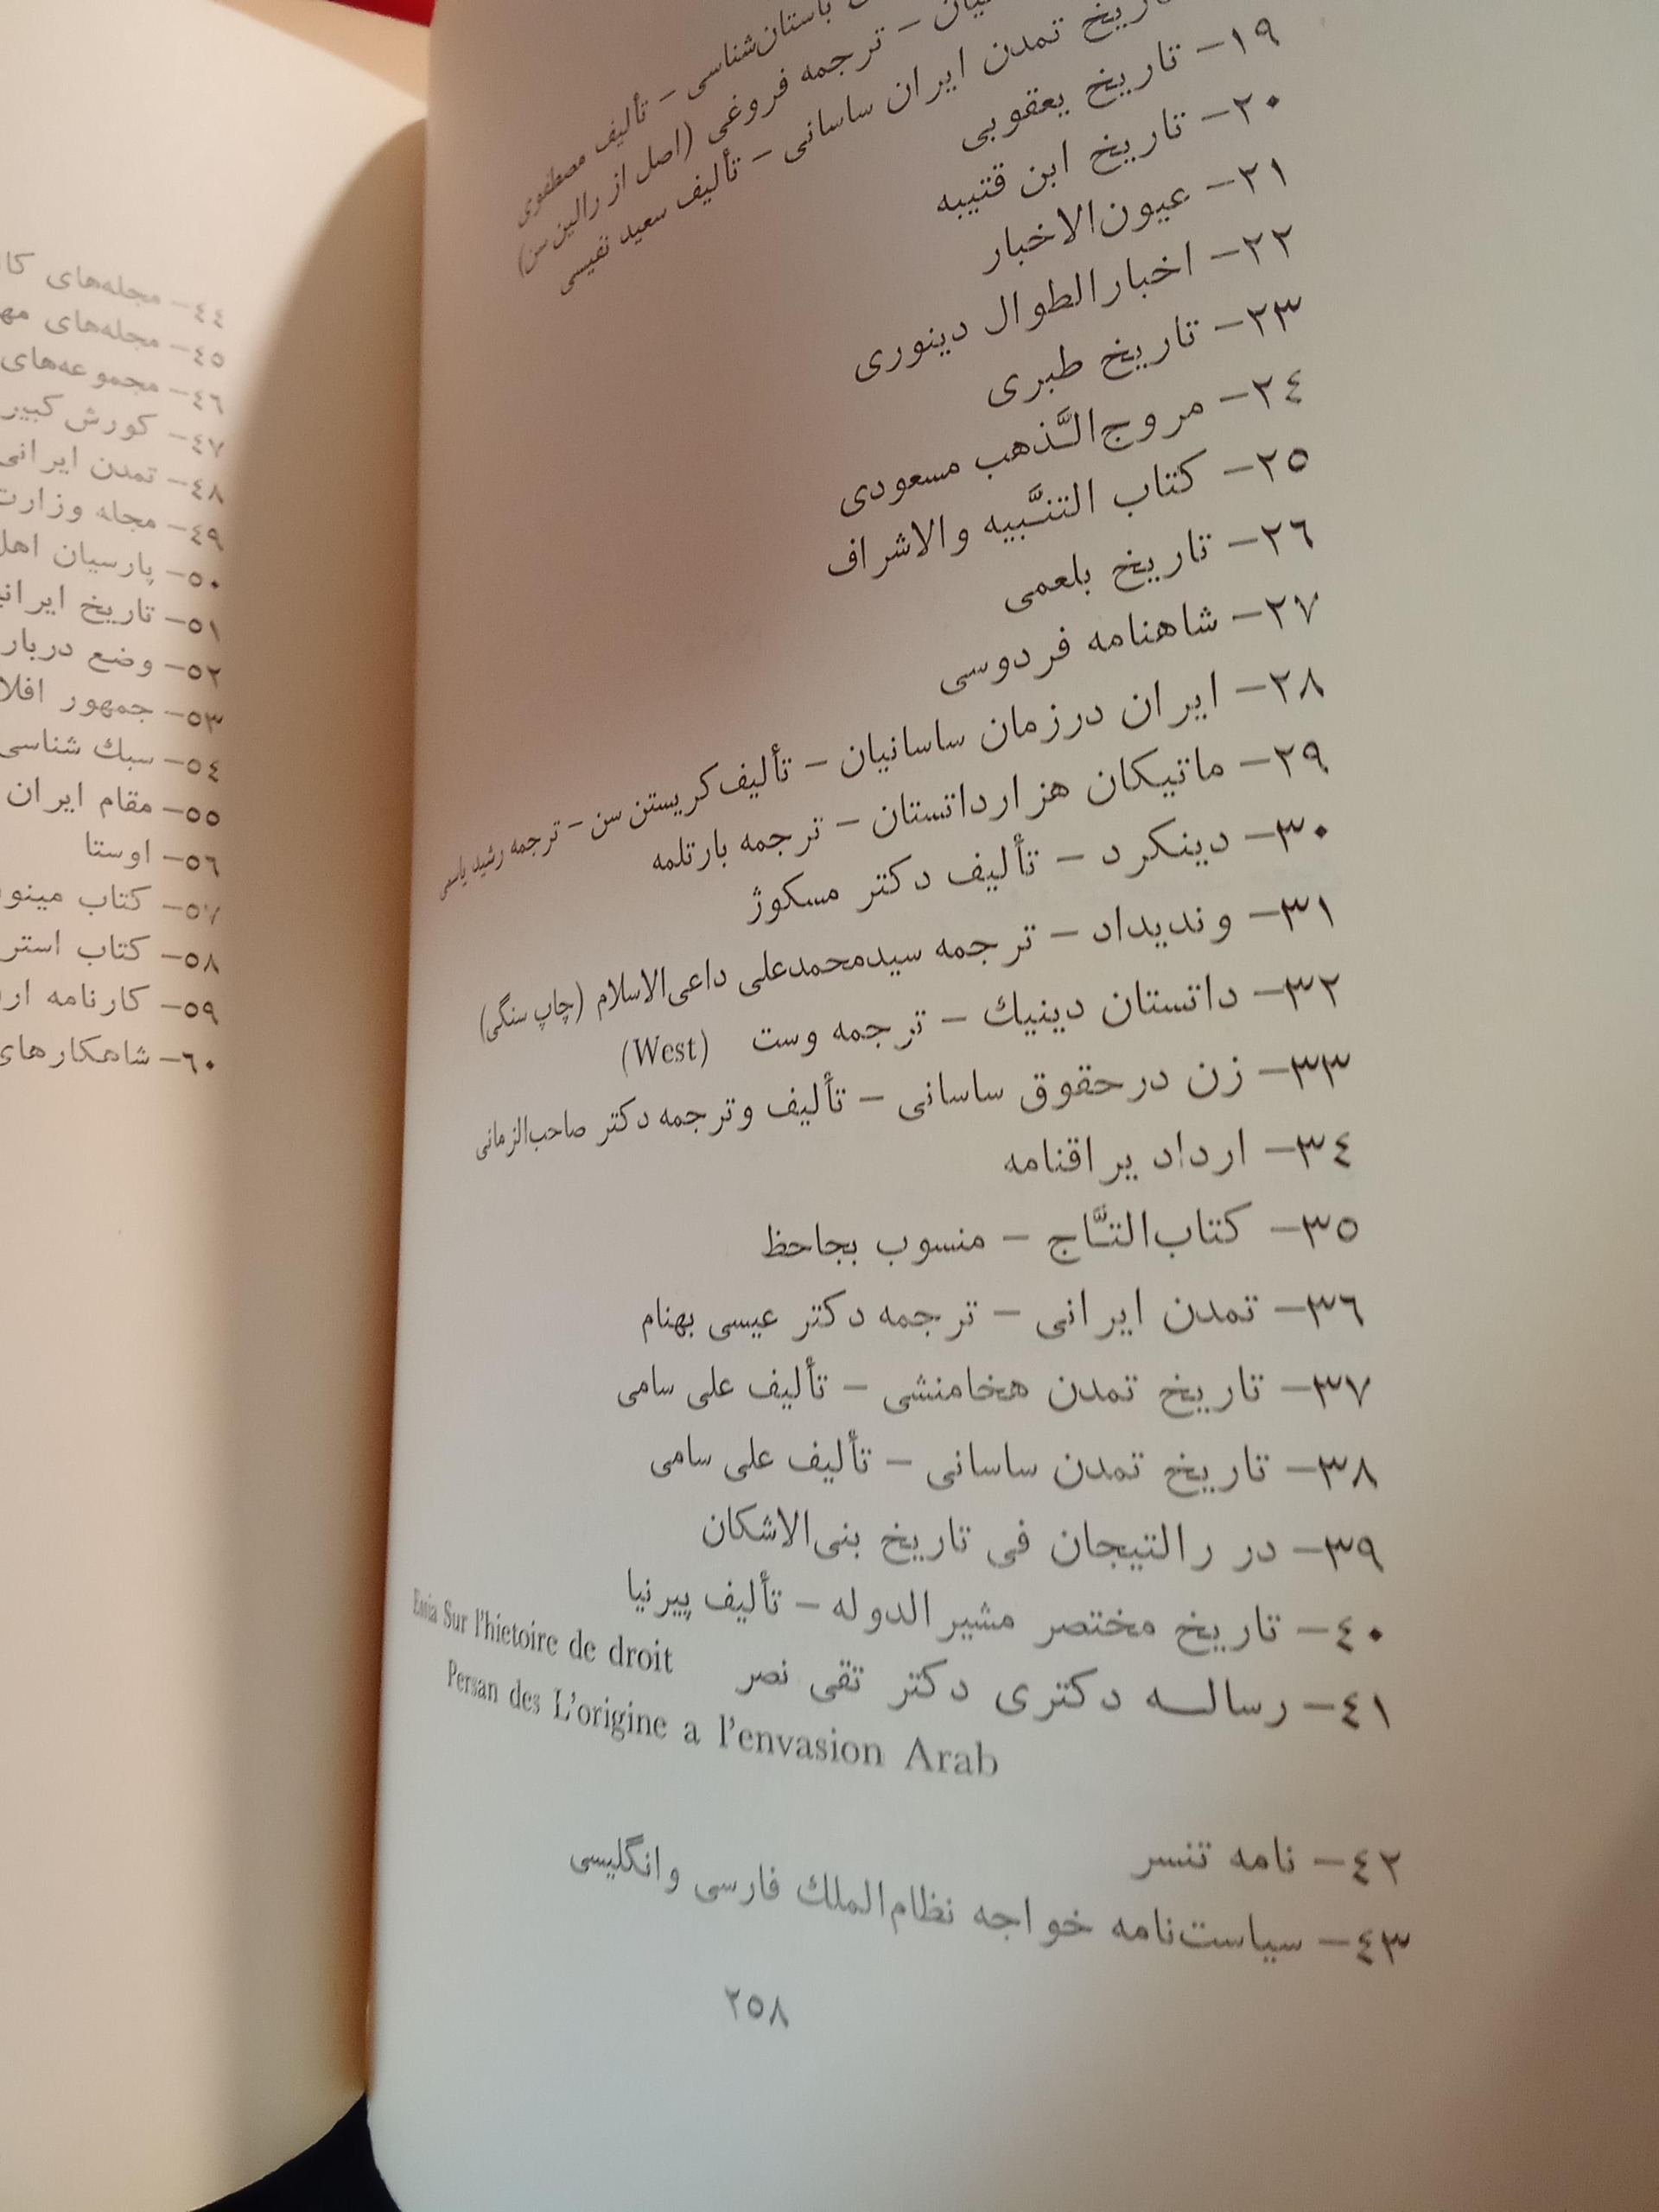 باستان‌شناسی – تألیف مصطفوی
– ترجمه فروغی (اصل از رالین‌سن)
تاریخ تمدن ایران ساسانی – تألیف سعید نفیسی
۱۹– تاریخ یعقوبی
۲۰– تاریخ ابن قتیبه
۲۱– عیون‌الاخبار
۲۲– اخبارالطوال دینوری
۲۳– تاریخ طبری
۲٤– مروج‌الذَّهب مسعودی
۲۵– کتاب التنَّبیه والاشراف
۲٦– تاریخ بلعمی
۲۷– شاهنامه فردوسی
۲۸– ایران درزمان ساسانیان – تألیف کریستن سن – ترجمه رشید یاسمی
۲۹– ماتیکان هزارداتستان – ترجمه بارتلمه
۳۰– دینکرد – تألیف دکتر مسکوژ
۳۱– وندیداد – ترجمه سیدمحمدعلی داعی‌الاسلام (چاپ سنگی)
۳۲– داتستان دینیك – ترجمه وست (West)
۳۳– زن درحقوق ساسانی – تألیف وترجمه دکتر صاحب‌الزمانی
۳٤– ارداد یراقنامه
۳۵– کتاب‌التَّاج – منسوب بجاحظ
۳٦– تمدن ایرانی – ترجمه دکتر عیسی بهنام
۳۷– تاریخ تمدن هخامنشی – تألیف علی سامی
۳۸– تاریخ تمدن ساسانی – تألیف علی سامی
۳۹– در رالتیجان فی تاریخ بنی‌الاشکان
٤۰– تاریخ مختصر مشیرالدوله – تألیف پیرنیا
٤۱– رساله دکتری دکتر تقی نصر Sur l'hietoire de droit
Persan des L'origine a l'envasion Arab
٤۲– نامه تنسر
٤۳– سیاست‌نامه خواجه نظام‌الملك فارسی وانگلیسی
۲۵۸
٤٤– مجله‌های
٤۵– مجله‌های
٤٦– مجموعه‌های
٤۷– کورش کبیر
٤۸– تمدن ایرانی
٤۹– مجله وزارت
۵۰– پارسیان اهل
۵۱– تاریخ
۵۲– وضع دربار
۵۳– جمهور
۵٤– سبك شناسی
۵۵– مقام ایران
۵٦– اوستا
۵۷– کتاب
۵۸– کتاب
۵۹– کارنامه
٦۰– شاهکارهای